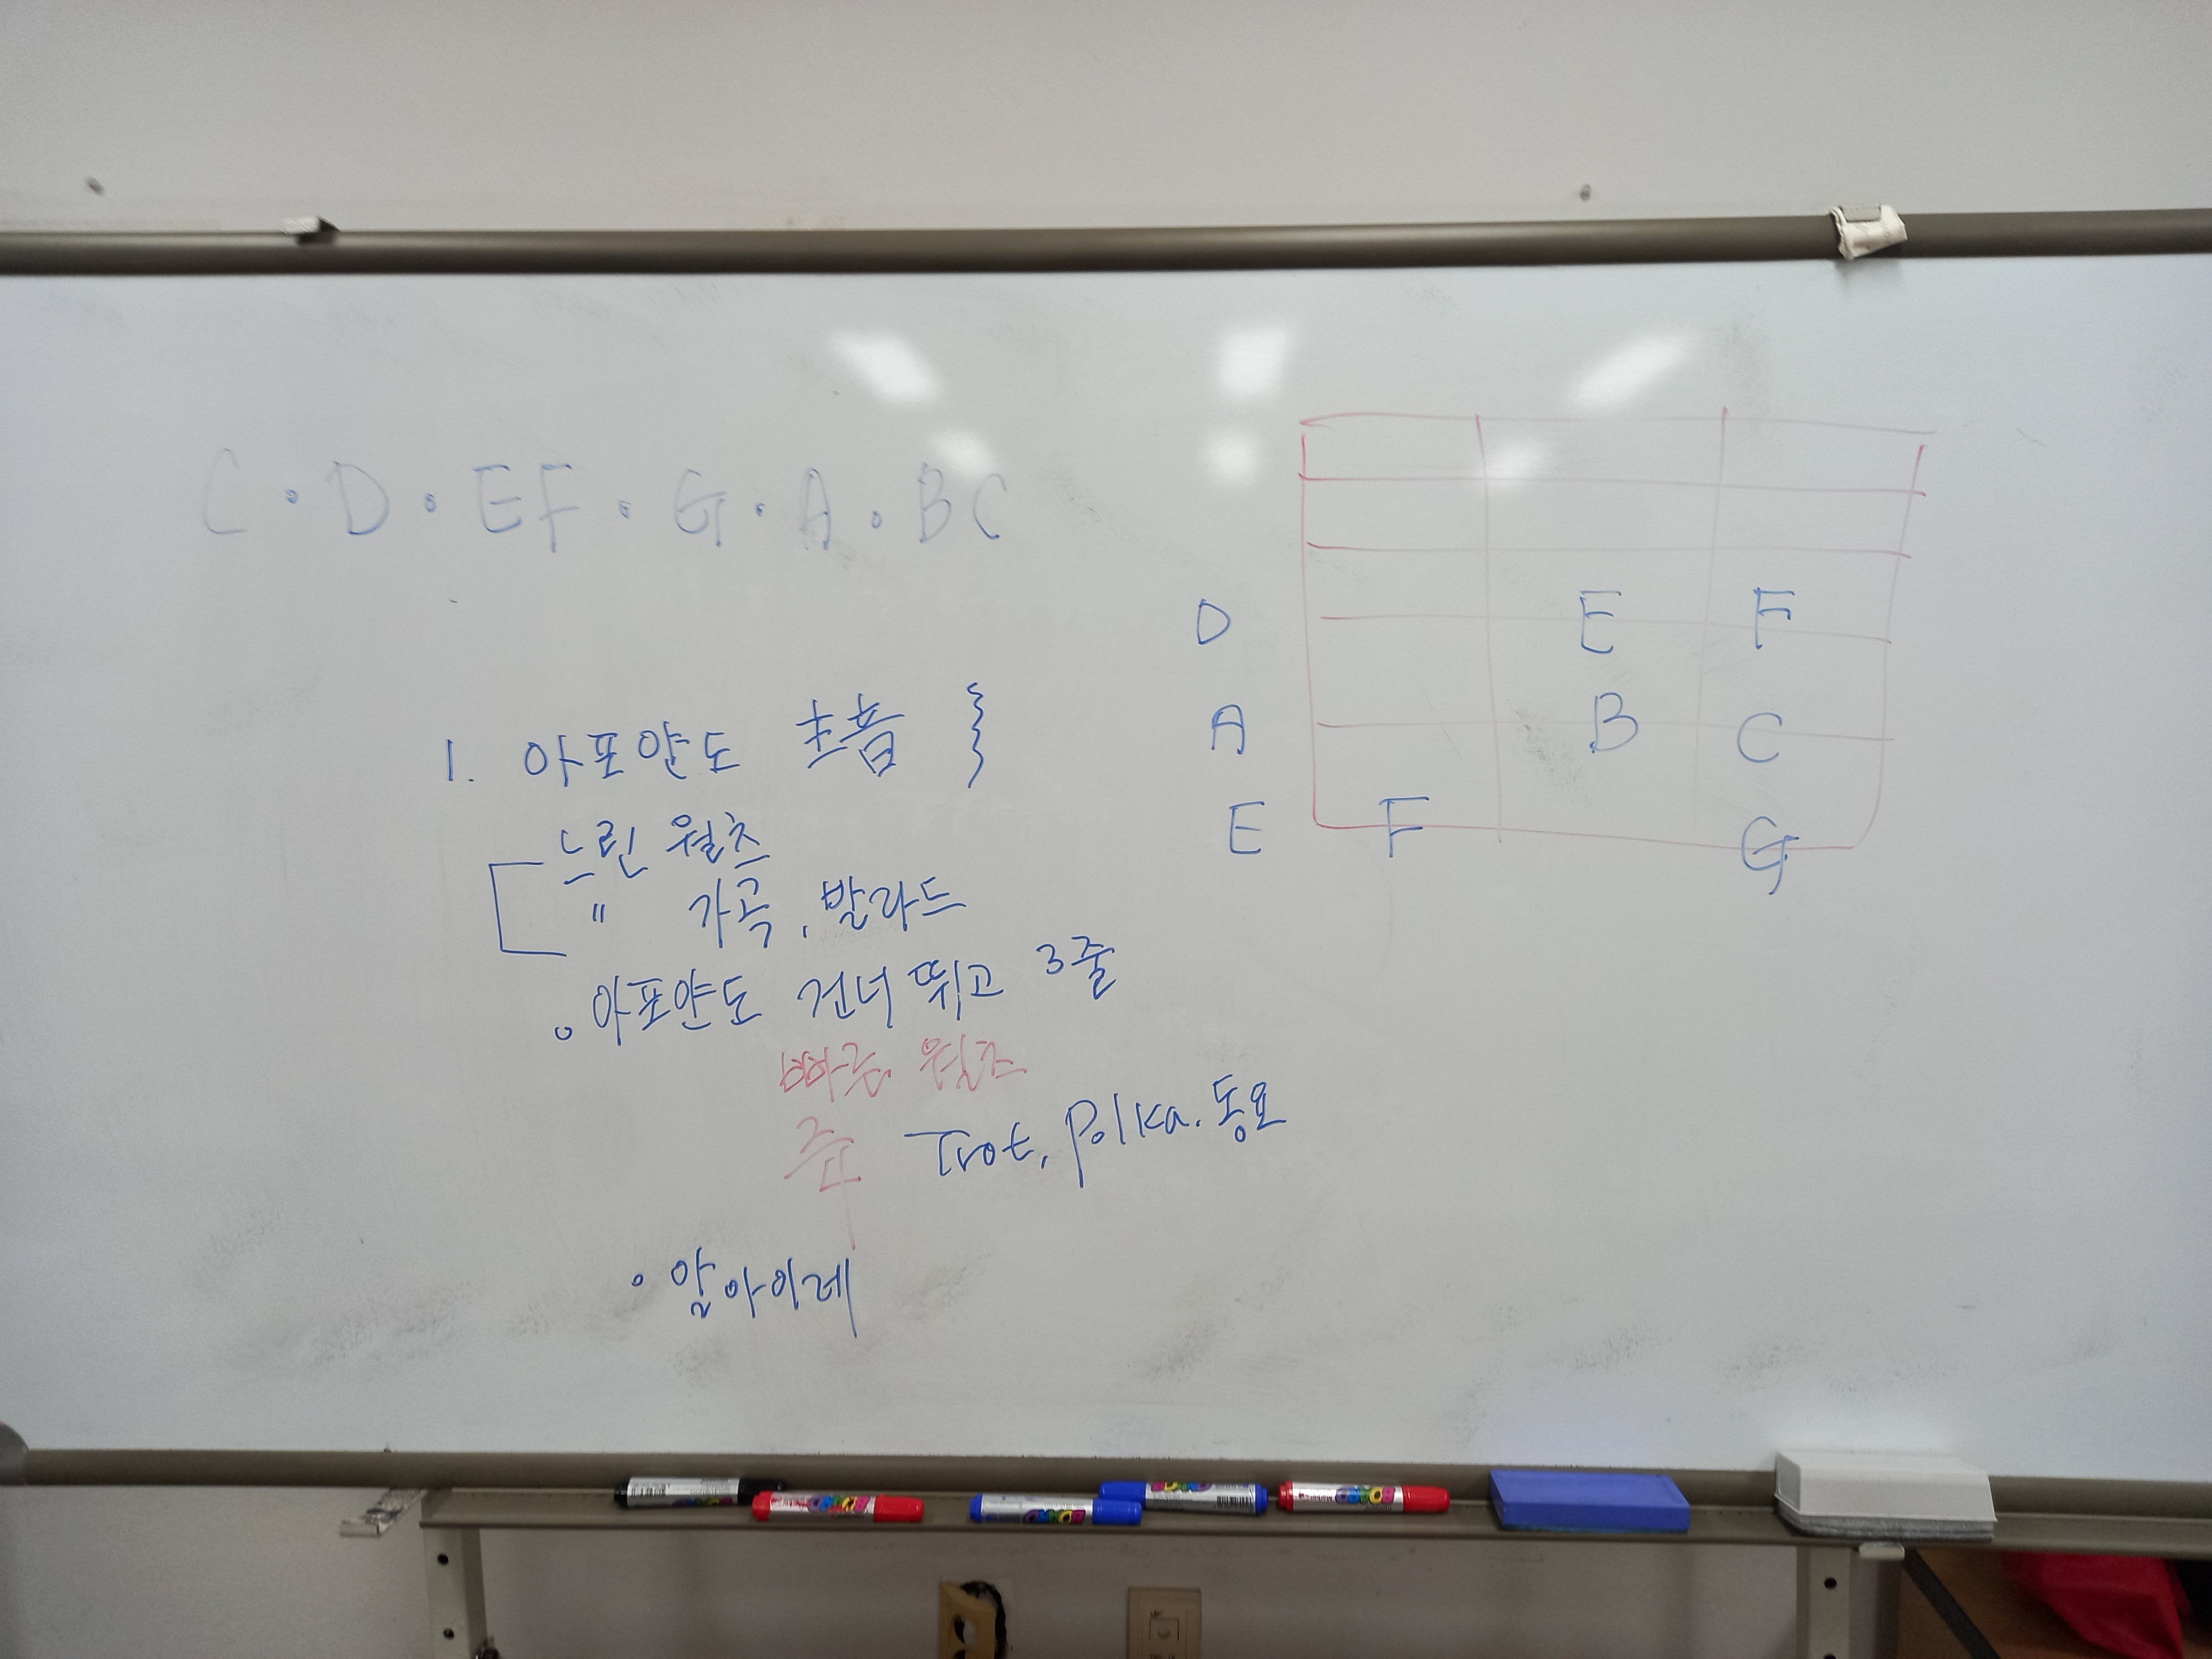 C · D · EF · G · A · BC
D E F
A B C
E F G
1. 아포얀도 초음 }
느린 월츠
" 가곡, 발라드
아포얀도 건너 뛰고 3줄
빠른 월츠
Trot, Polka. 동요
· 알아이레